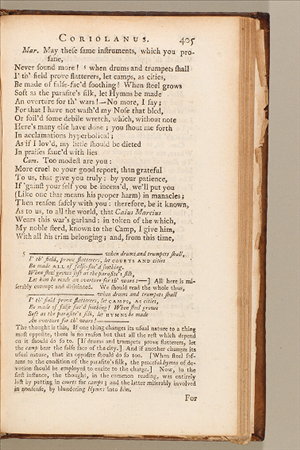 CORIOLANUS. 425
Mar. May these ſame inſtruments, which you pro-
fane,
Never ſound more! ⁵ when drums and trumpets ſhall
I' th' field prove flatterers, let camps, as cities,
Be made of falſe-fac'd ſoothing! When ſteel grows
Soft as the paraſite's ſilk, let Hymns be made
An overture for th' wars!—No more, I ſay;
For that I have not waſh'd my Noſe that bled,
Or foil'd ſome debile wretch, which, without note
Here's many elſe have done; you ſhout me forth
In acclamations hyperbolical;
As if I lov'd, my little ſhould be dieted
In praiſes ſauc'd with lies
Com. Too modeſt are you:
More cruel to your good report, than grateful
To us, that give you truly: by your patience,
If 'gainſt your ſelf you be incens'd, we'll put you
(Like one that means his proper harm) in manacles;
Then reaſon ſafely with you: therefore, be it known,
As to us, to all the world, that Caius Marcius
Wears this war's garland: in token of the which,
My noble ſteed, known to the Camp, I give him,
With all his trim belonging; and, from this time,
5 —— when drums and trumpets ſhall,
I' th' field, prove flatterers, let COURTS AND cities
Be made ALL of falſe-fac'd ſoothing.
When ſteel grows ſoft as the paraſite's ſilk,
Let him be made an overture for th' wars:—] All here is mi-
ſerably corrupt and disjointed. We ſhould read the whole thus,
—— when drums and trumpets ſhall
I' th' field prove flatterers, let CAMPS, AS cities,
Be made of falſe-fac'd ſoothing! When ſteel grows
Soft as the paraſite's ſilk, let HYMNS be made
An overture for th' wars!——
The thought is this, If one thing changes its uſual nature to a thing
moſt oppoſite, there is no reaſon but that all the reſt which depend
on it ſhould do ſo too. [If drums and trumpets prove flatterers, let
the camp bear the falſe face of the city.] And if another changes its
uſual nature, that its oppoſite ſhould do ſo too. [When ſteel ſof-
tens to the condition of the paraſite's ſilk, the peaceful hymns of de-
votion ſhould be employed to excite to the charge.] Now, in the
firſt inſtance, the thought, in the common reading, was entirely
loſt by putting in courts for camps; and the latter miſerably involved
in nonſenſe, by blundering Hymns into him.
For